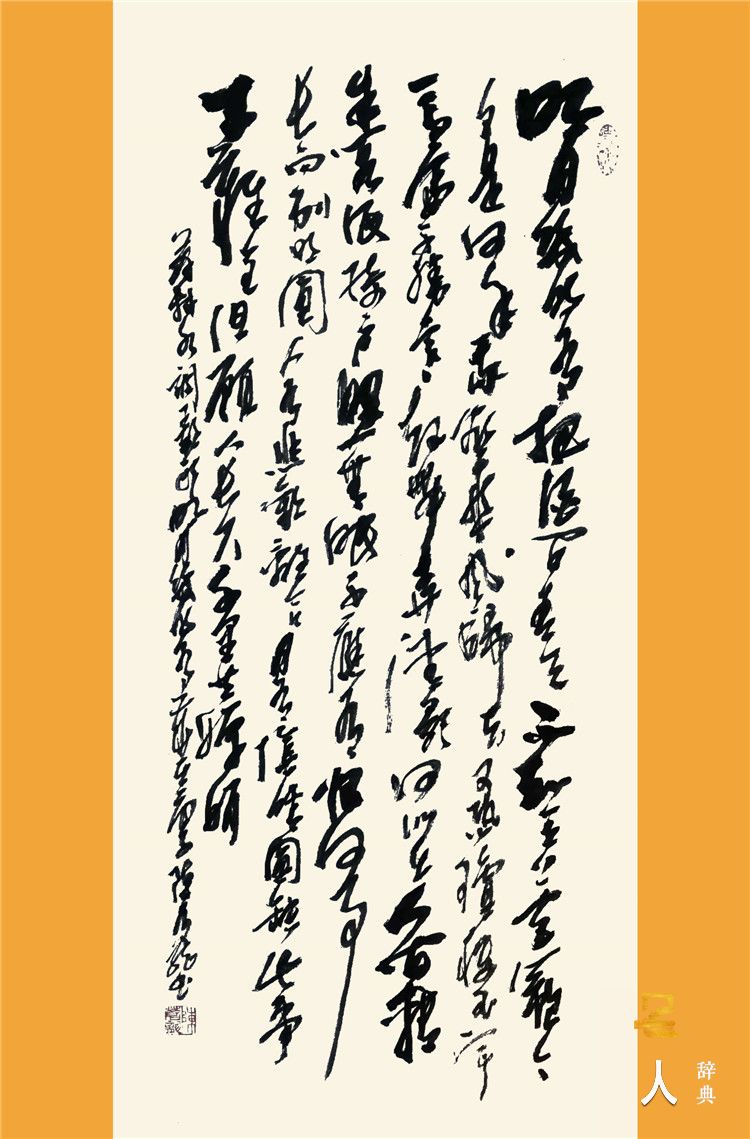 明月幾時有把酒問青天不知天上宮闕今
夕是何年我欲乘風歸去又恐瓊樓玉宇
高處不勝寒起舞弄清影何似在人間轉
朱閣低綺戶照無眠不應有恨何事
長向別時圓人有悲歡離合月有陰晴圓缺此事
古難全但願人長久千里共嬋娟
蘇軾水調歌頭明月幾時有 歲在 陳 書
名人
辞典